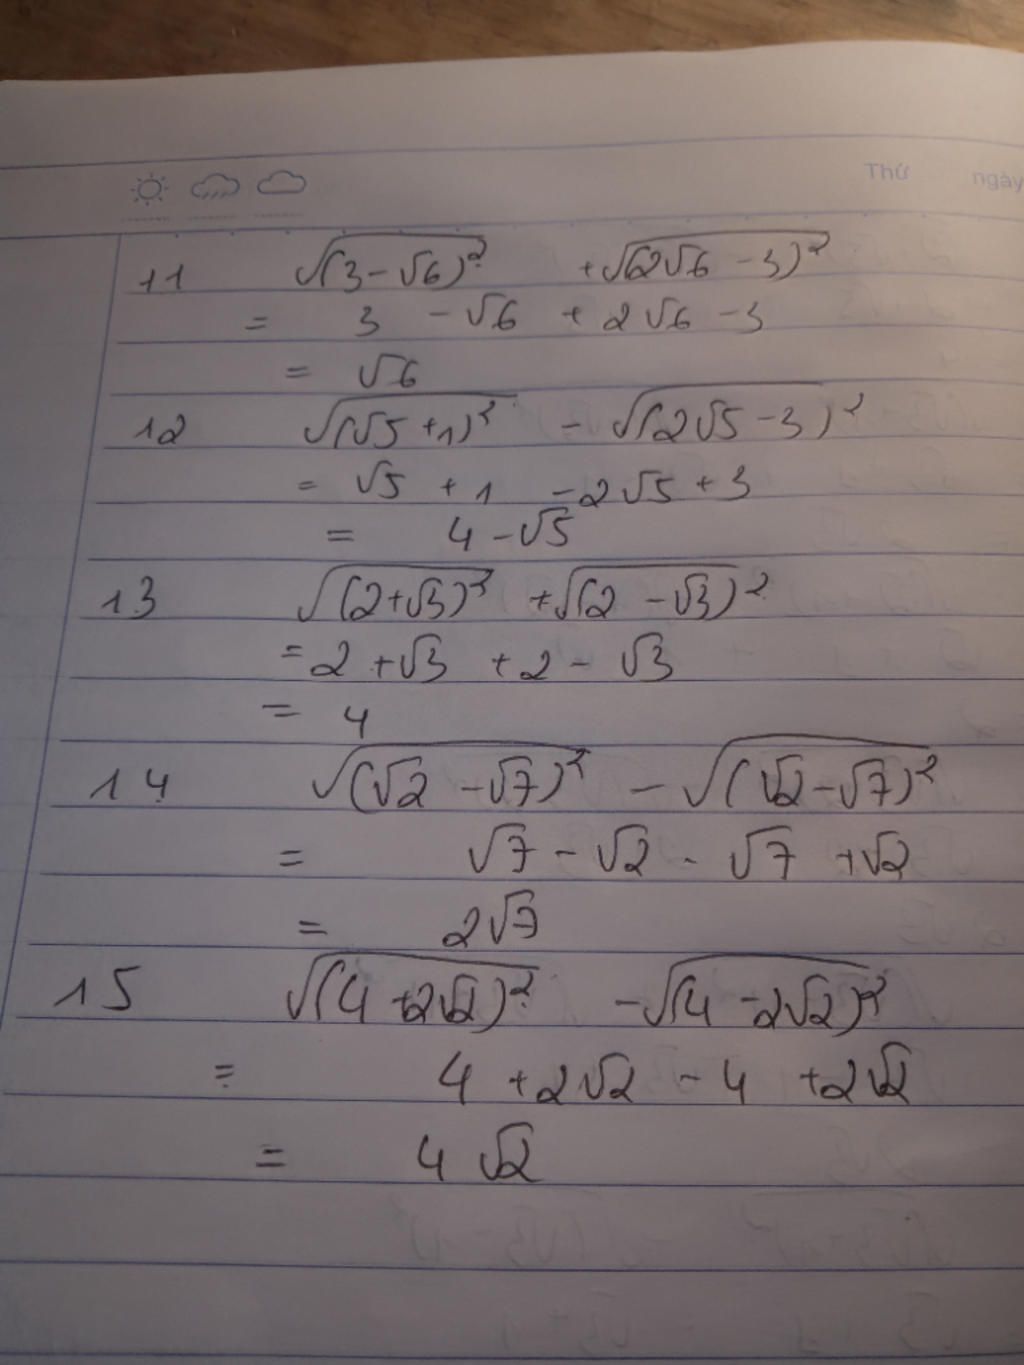 Thứ ngày
11 √(3-√6)² + √(2√6 - 3)²
= 3 - √6 + 2√6 - 3
= √6
12 √(√5 + 1)² - √(2√5 - 3)²
= √5 + 1 - 2√5 + 3
= 4 - √5
13 √(2+√3)² + √(2 - √3)²
= 2 + √3 + 2 - √3
= 4
14 √(√2 - √7)² - √(√2 - √7)²
= √7 - √2 - √7 + √2
= 2√7
15 √(4 + 2√2)² - √(4 - 2√2)²
= 4 + 2√2 - 4 + 2√2
= 4√2